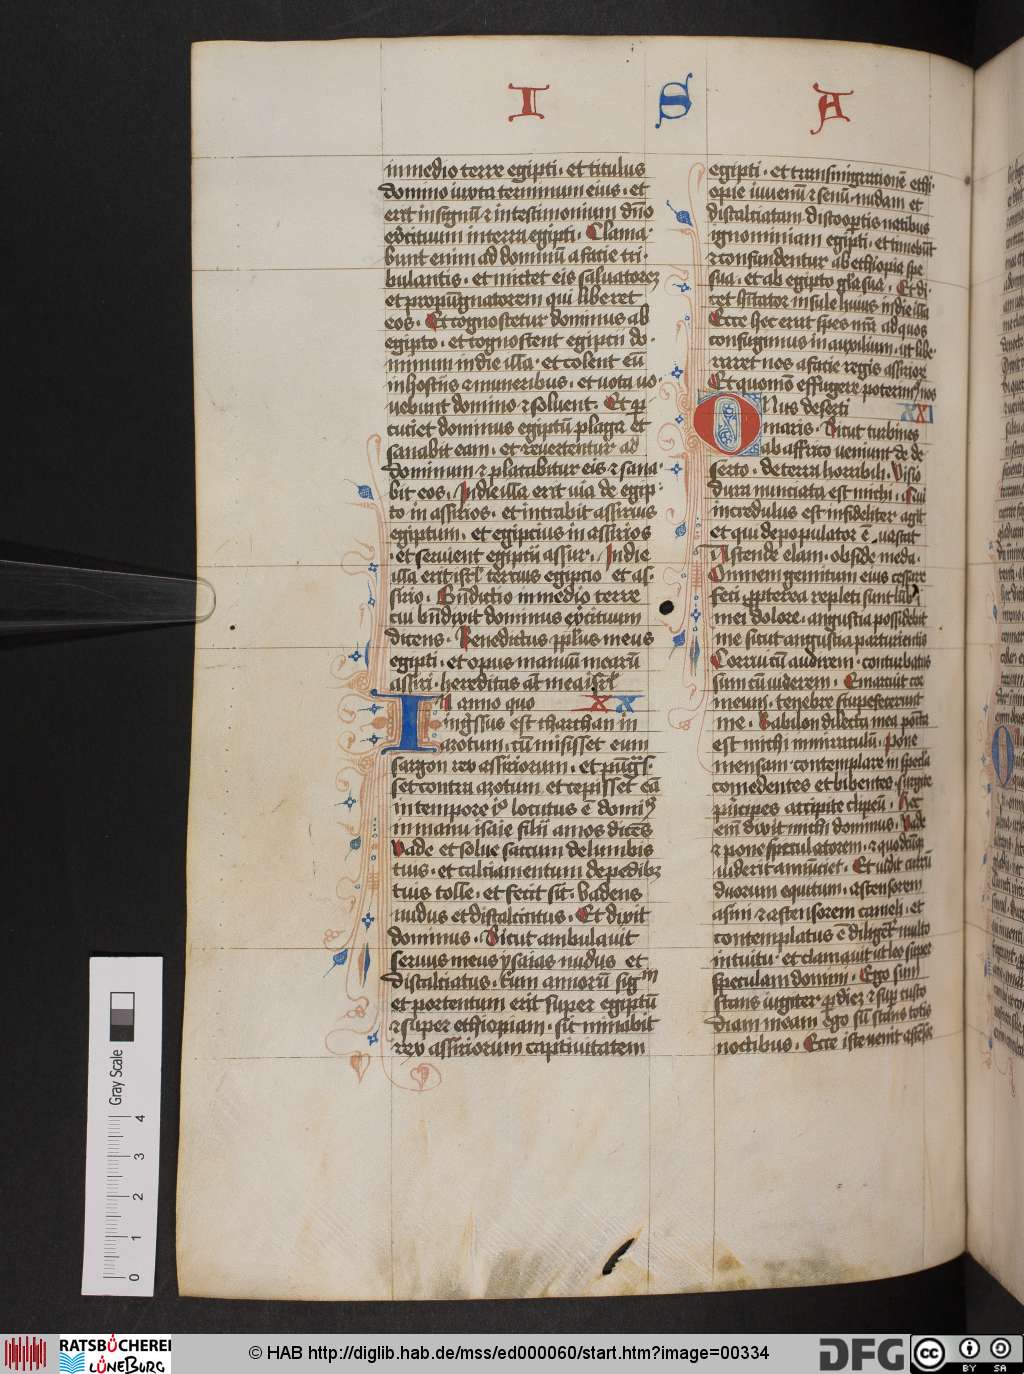 I S A
in medio terre egipti · et titulus
domino iuxta terminum eius · et
erit in signū ⁊ in testimonium dn̄o
exˀcituum in terra egipti · Clama·
bunt enim ad dominū a facie tri·
bulantis · et mittet eis saluatorez
et propūgnatorem qui liberet
eos · Et cognoscetur dominus ab
egipto · et cognoscent egiptii do·
minum in die illa · et colent eū
in hostiis ⁊ muneribus · et uota uo·
uebunt domino ⁊ soluent · Et ꝑ
cutiet dominus egiptū plaga et
sanabit eam · et reuertentur ad
dominum ⁊ placabitur eis ⁊ sana·
bit eos · In die illa erit uia de egip·
to in assirios · et intrabit assirius
egiptum · et egiptius in assirios
· et seruient egiptii assur · In die
illa erit isrl̄ tercius egipcio et as·
sirio · Bn̄dictio in medio terre
cui bn̄dixit dominus exˀcituum
dicens · Benedictus pp̄lus meus
egipti · et opus manuū mearū
assiri · hereditas aūt mea isrl̄
In anno quo XX
ingˀssus est tharthan in
azotum · cū misisset eum
sargon rex assiriorum · et pūgˀs·
set contra azotum et cepisset eā
in tempore iꝰ locutus ē dominꝰ
in manu isaie filii amos dicēs
Vade et solue saccum de lumbis
tuis · et calciamentum de pedibz
tuis tolle · et fecit sic · vadens
nudus et discalciatus · Et dixit
dominus · Sicut ambulauit
seruus meus ysaias nudus et
discalciatus · trium annorū sigᵐ
et portentum erit super egiptū
⁊ super ethiopiam · sic minabit
rex assiriorum captiuitatem
egipti · et transmigrationē ethi·
opie iuuenū ⁊ senū · nudam et
discalciatam discooꝑtis natibus
ignominiam egipti · et timebūt
⁊ confundentur ab ethiopia spe
sua · et ab egipto gl̄a sua · Et di·
cet hītator insule huius in die illa
Ecce hec erat spes nr̄a ad quos
confugimus in auxilium · ut libe·
raret nos a facie regis assiriorꝝ
Et quomō effugere poterimꝰ nos
Onus deserti XXI
maris · Sicut turbines
ab affrico veniunt de de·
serto · de terra horribili · Visio
dura nunciata est michi · Qui
incredulus est infideliter agit
et qui depopulator ē uastat
Ascende elam · obside meda ·
Omnem gemitum eius cessare
feci · ꝓpterea repleti sunt lūbi
mei dolore · angustia possidebit
me sicut angustia parturientis
Corrui cū audirem · conturbatus
sum cū uiderem · Emarcuit cor
meum · tenebre stupefecerunt
me · Babilon dilecta mea posita
est michi in miraculū · Pone
mensam contemplare in specula
comedentes et bibentes · surgite
pˀncipes arripite clipeū · Hec
em̄ dixit michi dominus · Vade
⁊ pone speculatorem · ⁊ quodcūqꝫ
uiderit annūciet · Et uidit currū
duorum equitum · ascensorem
asini ⁊ ascensorem cameli · et
contemplatus ē diligētˀ multo
intuitu · et clamauit ut leo super
speculam domini · Ego sum
stans iugiter ꝑ diez ⁊ sup custo
diam meam ego sū stans totis
noctibus · Ecce iste uenit ascēsor
0 1 2 3 4 Gray Scale
RATSBÜCHEREI
LÜNEBURG
© HAB http://diglib.hab.de/mss/ed000060/start.htm?image=00334
DFG
cc BY SA